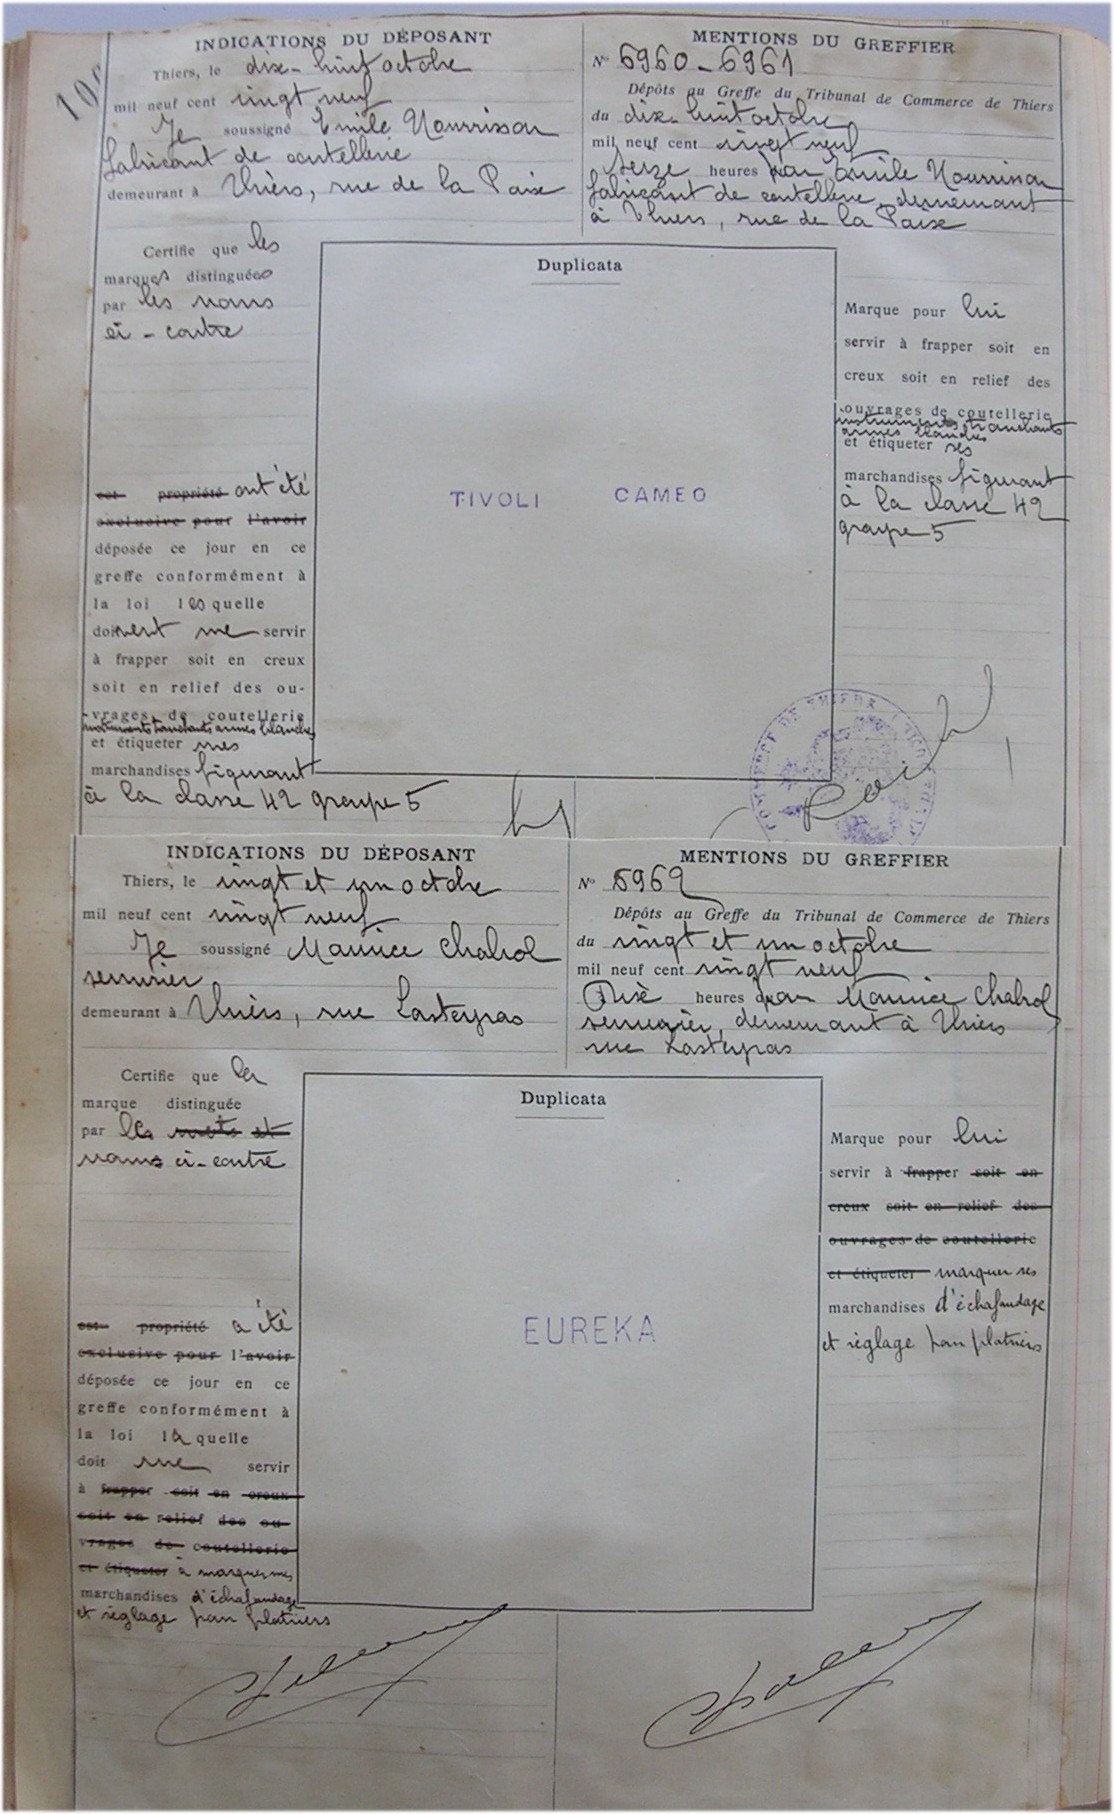 INDICATIONS DU DÉPOSANT
Thiers, le dix-huit octobre
mil neuf cent vingt neuf
Je soussigné Emile Nourrisson
fabricant de coutellerie
demeurant à Thiers, rue de la Paix
MENTIONS DU GREFFIER
N° 6960-6961
Dépôts au Greffe du Tribunal de Commerce de Thiers
du dix-huit octobre
mil neuf cent vingt neuf
seize heures par Emile Nourrisson
fabricant de coutellerie, demeurant
à Thiers, rue de la Paix
Certifie que les
marques distinguées
par les noms
ci-contre
est propriété ont été
exclusive pour l'avoir
déposée ce jour en ce
greffe conformément à
la loi lesquelle
doivent me servir
à frapper soit en creux
soit en relief des ou-
vrages de coutellerie
instruments tranchants armes blanches
et étiqueter mes
marchandises figurant
à la classe 42 groupe 5
Duplicata
TIVOLI CAMEO
Marque pour lui
servir à frapper soit en
creux soit en relief des
ouvrages de coutellerie
instruments tranchants
armes blanches
et étiqueter ses
marchandises figurant
à la classe 42
groupe 5
INDICATIONS DU DÉPOSANT
Thiers, le vingt et un octobre
mil neuf cent vingt neuf
Je soussigné Maurice Chabrol
serrurier
demeurant à Thiers, rue Lasteyras
MENTIONS DU GREFFIER
N° 6962
Dépôts au Greffe du Tribunal de Commerce de Thiers
du vingt et un octobre
mil neuf cent vingt neuf
Dix heures par Maurice Chabrol
serrurier, demeurant à Thiers
rue Lasteyras
Certifie que la
marque distinguée
par le mots et
noms ci-contre
est propriété a été
exclusive pour l'avoir
déposée ce jour en ce
greffe conformément à
la loi laquelle
doit me servir
à frapper soit en creux
soit en relief des ou-
vrages de coutellerie
et étiqueter à marquer mes
marchandises d'échafaudage
et réglage pour platriers
Duplicata
EUREKA
Marque pour lui
servir à frapper soit en
creux soit en relief des
ouvrages de coutellerie
et étiqueter marquer ses
marchandises d'échafaudage
et réglage pour platriers